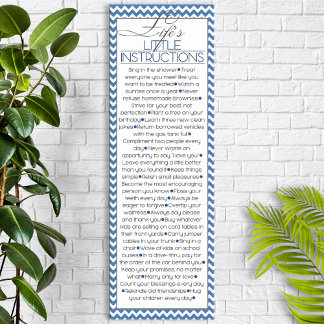 Life's
LITTLE
INSTRUCTIONS
Sing in the shower • Treat
everyone you meet like you
want to be treated • Watch a
sunrise once a year • Never
refuse homemade brownies •
Strive for your best, not
perfection • Plant a tree on your
birthday • Learn three new clean
jokes • Return borrowed vehicles
with the gas tank full •
Compliment two people every
day • Never waste an
opportunity to say "I love you" •
Leave everything a little better
than you found it • Keep things
simple • Relish small pleasures •
Become the most encouraging
person you know • Floss your
teeth every day • Always be
eager to forgive • Overtip your
waitress • Always say please
and thank you • Buy whatever
kids are selling on card tables in
their front yards • Carry jumper
cables in your trunk • Sing in a
choir • Wave at kids on school
buses • In a drive-thru, pay for
the order of the car behind you •
Keep your promises, no matter
what • Marry only for love •
Count your blessings every day
• Rekindle old friendships • Hug
your children every day •